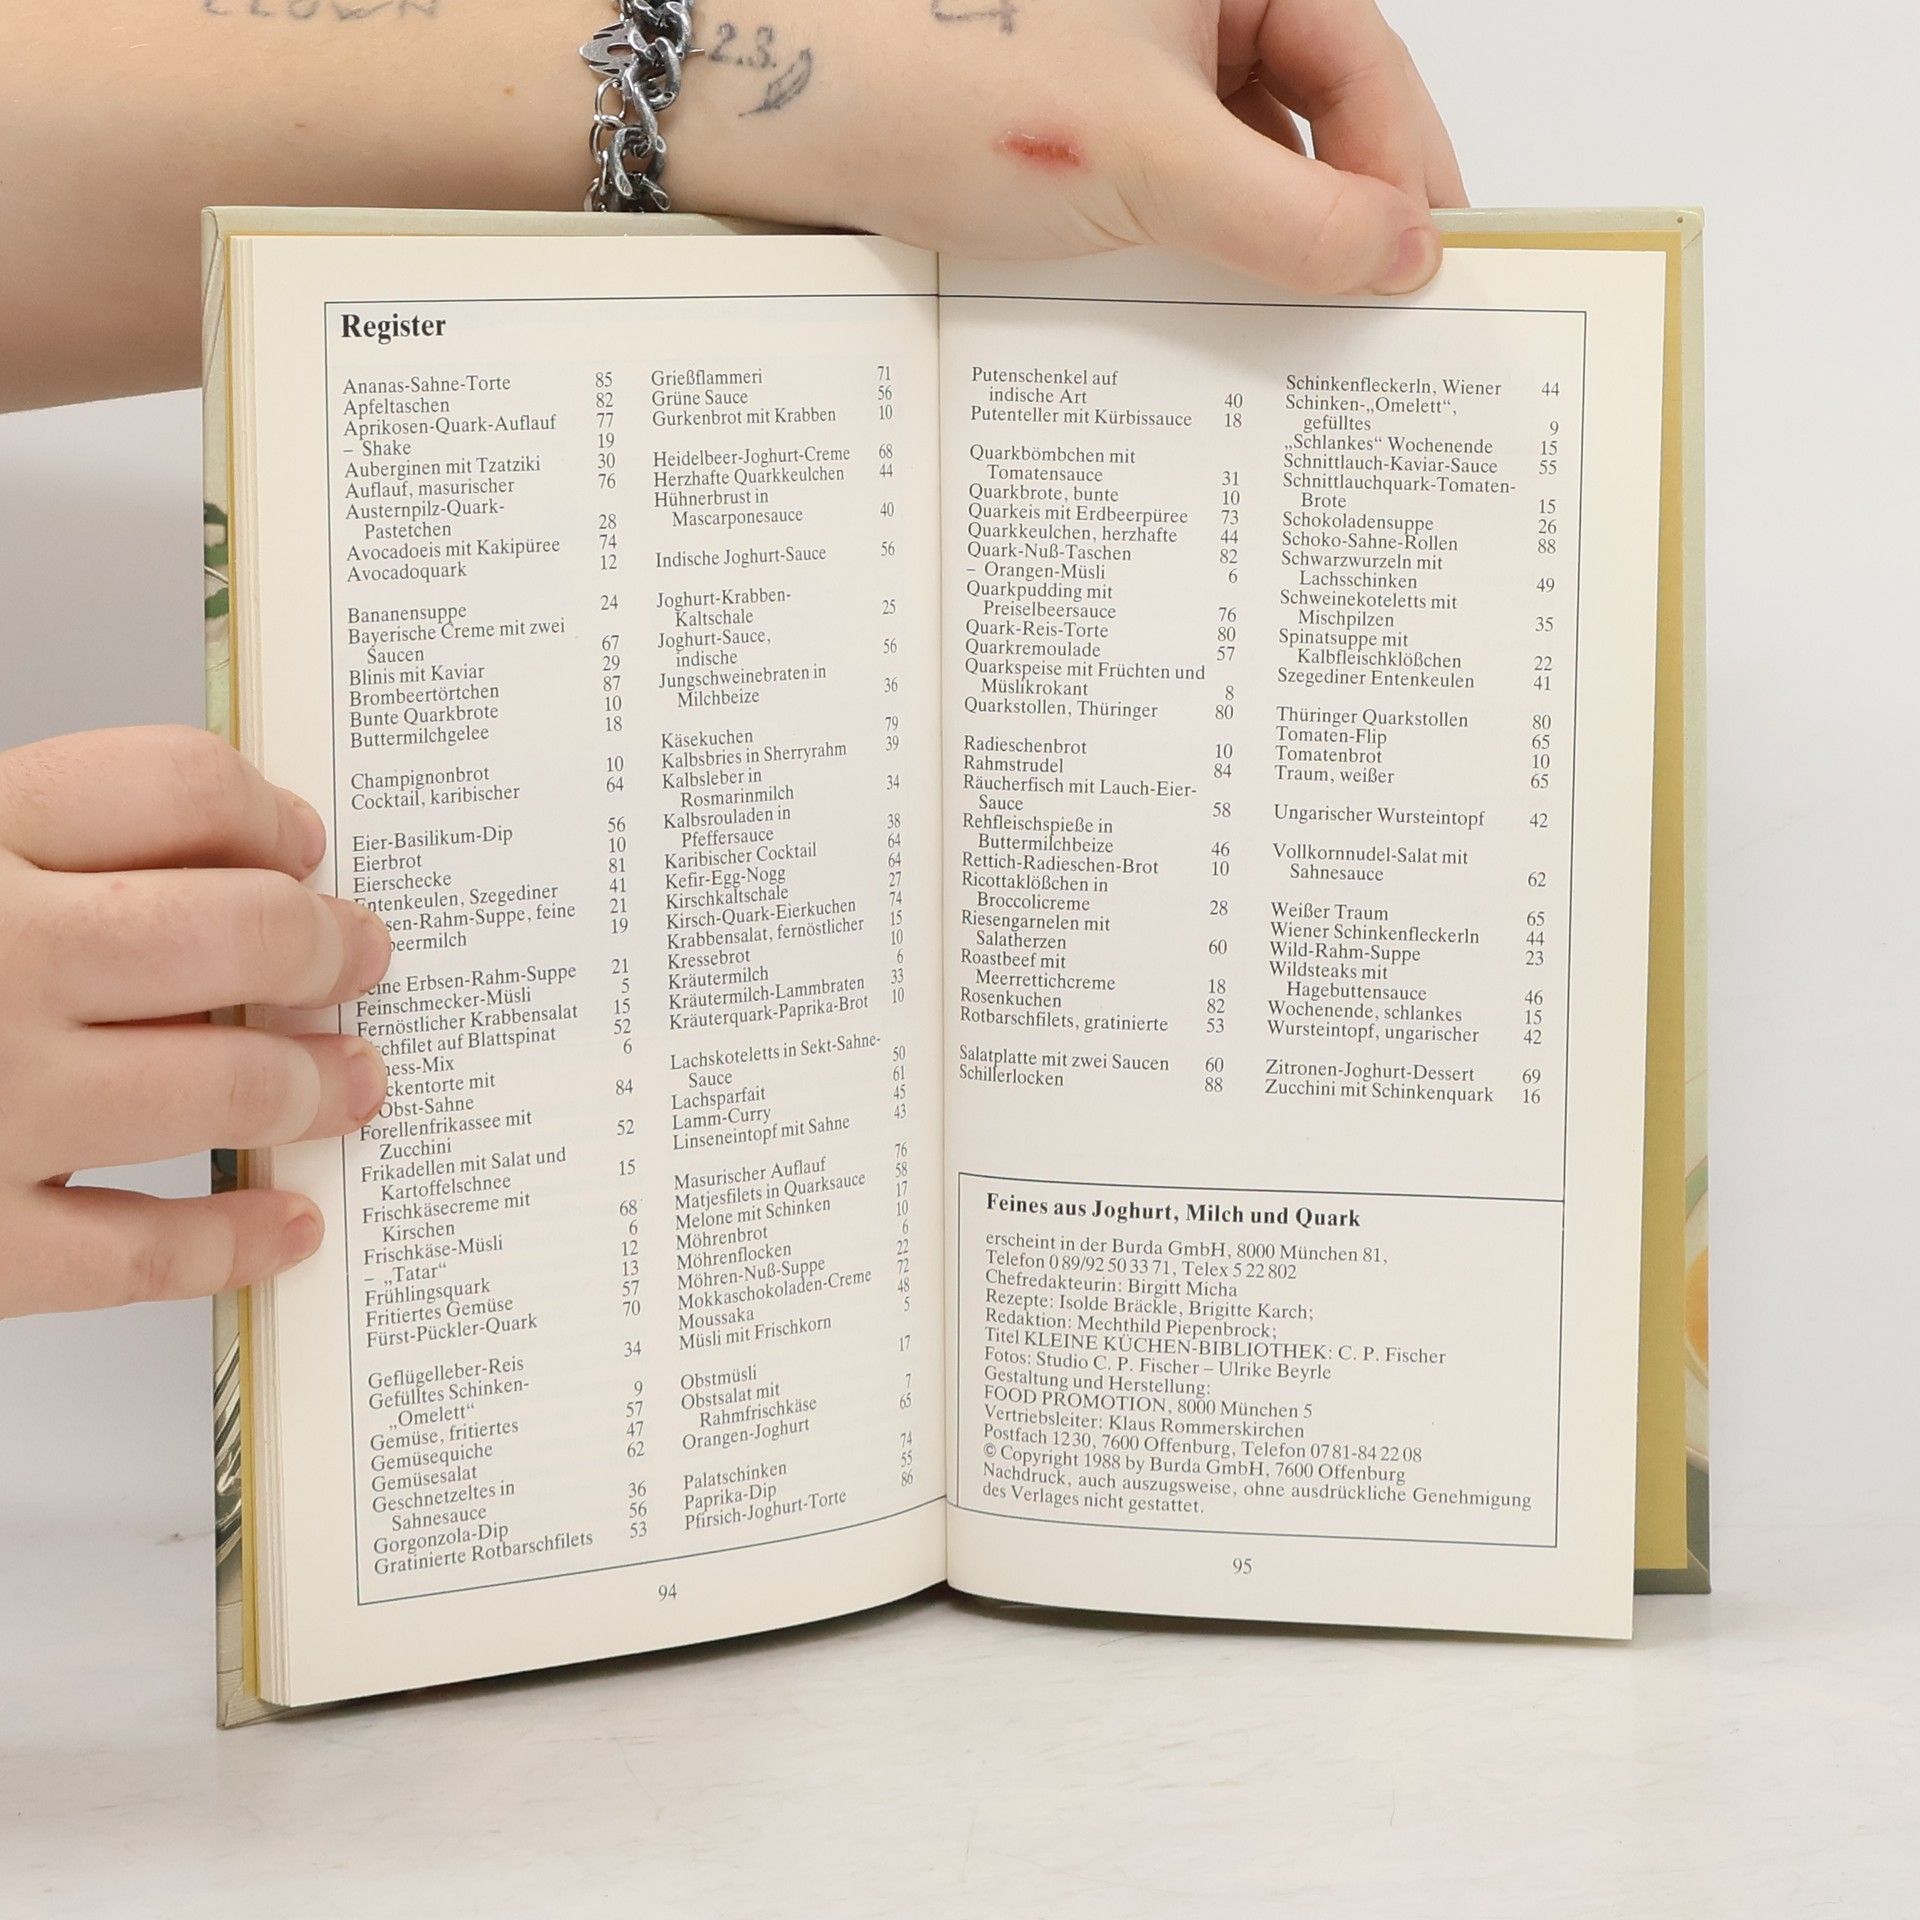 CLOWN
2.3.
Register
Ananas-Sahne-Torte 85
Apfeltaschen 82
Aprikosen-Quark-Auflauf 77
– Shake 19
Auberginen mit Tzatziki 30
Auflauf, masurischer 76
Austernpilz-Quark-
Pastetchen 28
Avocadoeis mit Kakipüree 74
Avocadoquark 12
Bananensuppe 24
Bayerische Creme mit zwei
Saucen 67
Blinis mit Kaviar 29
Brombeertörtchen 87
Bunte Quarkbrote 10
Buttermilchgelee 18
Champignonbrot 10
Cocktail, karibischer 64
Eier-Basilikum-Dip 56
Eierbrot 10
Eierschecke 81
Entenkeulen, Szegediner 41
sen-Rahm-Suppe, feine 21
beermilch 19
ine Erbsen-Rahm-Suppe 21
Feinschmecker-Müsli 5
Fernöstlicher Krabbensalat 15
chfilet auf Blattspinat 52
ness-Mix 6
ckentorte mit
Obst-Sahne 84
Forellenfrikassee mit
Zucchini 52
Frikadellen mit Salat und
Kartoffelschnee 15
Frischkäsecreme mit
Kirschen 68
Frischkäse-Müsli 6
– „Tatar“ 12
Frühlingsquark 13
Fritiertes Gemüse 57
Fürst-Pückler-Quark 70
Geflügelleber-Reis 34
Gefülltes Schinken-
„Omelett“ 9
Gemüse, fritiertes 57
Gemüsequiche 47
Gemüsesalat 62
Geschnetzeltes in
Sahnesauce 36
Gorgonzola-Dip 56
Gratinierte Rotbarschfilets 53
Grießflammeri 71
Grüne Sauce 56
Gurkenbrot mit Krabben 10
Heidelbeer-Joghurt-Creme 68
Herzhafte Quarkkeulchen 44
Hühnerbrust in
Mascarponesauce 40
Indische Joghurt-Sauce 56
Joghurt-Krabben-
Kaltschale 25
Joghurt-Sauce,
indische 56
Jungschweinebraten in
Milchbeize 36
Käsekuchen 79
Kalbsbries in Sherryrahm 39
Kalbsleber in
Rosmarinmilch 34
Kalbsrouladen in
Pfeffersauce 38
Karibischer Cocktail 64
Kefir-Egg-Nogg 64
Kirschkaltschale 27
Kirsch-Quark-Eierkuchen 74
Krabbensalat, fernöstlicher 15
Kressebrot 10
Kräutermilch 6
Kräutermilch-Lammbraten 33
Kräuterquark-Paprika-Brot 10
Lachskoteletts in Sekt-Sahne-
Sauce 50
Lachsparfait 61
Lamm-Curry 45
Linseneintopf mit Sahne 43
Masurischer Auflauf 76
Matjesfilets in Quarksauce 58
Melone mit Schinken 17
Möhrenbrot 10
Möhrenflocken 6
Möhren-Nuß-Suppe 22
Mokkaschokoladen-Creme 72
Moussaka 48
Müsli mit Frischkorn 5
Obstmüsli 17
Obstsalat mit
Rahmfrischkäse 7
Orangen-Joghurt 65
Palatschinken 74
Paprika-Dip 55
Pfirsich-Joghurt-Torte 86
94
Putenschenkel auf
indische Art 40
Putenteller mit Kürbissauce 18
Quarkbömbchen mit
Tomatensauce 31
Quarkbrote, bunte 10
Quarkeis mit Erdbeerpüree 73
Quarkkeulchen, herzhafte 44
Quark-Nuß-Taschen 82
– Orangen-Müsli 6
Quarkpudding mit
Preiselbeersauce 76
Quark-Reis-Torte 80
Quarkremoulade 57
Quarkspeise mit Früchten und
Müslikrokant 8
Quarkstollen, Thüringer 80
Radieschenbrot 10
Rahmstrudel 84
Räucherfisch mit Lauch-Eier-
Sauce 58
Rehfleischspieße in
Buttermilchbeize 46
Rettich-Radieschen-Brot 10
Ricottaklößchen in
Broccolicreme 28
Riesengarnelen mit
Salatherzen 60
Roastbeef mit
Meerrettichcreme 18
Rosenkuchen 82
Rotbarschfilets, gratinierte 53
Salatplatte mit zwei Saucen 60
Schillerlocken 88
Schinkenfleckerln, Wiener 44
Schinken-„Omelett“,
gefülltes 9
„Schlankes“ Wochenende 15
Schnittlauch-Kaviar-Sauce 55
Schnittlauchquark-Tomaten-
Brote 15
Schokoladensuppe 26
Schoko-Sahne-Rollen 88
Schwarzwurzeln mit
Lachsschinken 49
Schweinekoteletts mit
Mischpilzen 35
Spinatsuppe mit
Kalbfleischklößchen 22
Szegediner Entenkeulen 41
Thüringer Quarkstollen 80
Tomaten-Flip 65
Tomatenbrot 10
Traum, weißer 65
Ungarischer Wursteintopf 42
Vollkornnudel-Salat mit
Sahnesauce 62
Weißer Traum 65
Wiener Schinkenfleckerln 44
Wild-Rahm-Suppe 23
Wildsteaks mit
Hagebuttensauce 46
Wochenende, schlankes 15
Wursteintopf, ungarischer 42
Zitronen-Joghurt-Dessert 69
Zucchini mit Schinkenquark 16
Feines aus Joghurt, Milch und Quark
erscheint in der Burda GmbH, 8000 München 81,
Telefon 0 89/92 50 33 71, Telex 5 22 802
Chefredakteurin: Birgitt Micha
Rezepte: Isolde Bräckle, Brigitte Karch;
Redaktion: Mechthild Piepenbrock;
Titel KLEINE KÜCHEN-BIBLIOTHEK: C. P. Fischer
Fotos: Studio C. P. Fischer – Ulrike Beyrle
Gestaltung und Herstellung:
FOOD PROMOTION, 8000 München 5
Vertriebsleiter: Klaus Rommerskirchen
Postfach 12 30, 7600 Offenburg, Telefon 07 81-84 22 08
© Copyright 1988 by Burda GmbH, 7600 Offenburg
Nachdruck, auch auszugsweise, ohne ausdrückliche Genehmigung
des Verlages nicht gestattet.
95